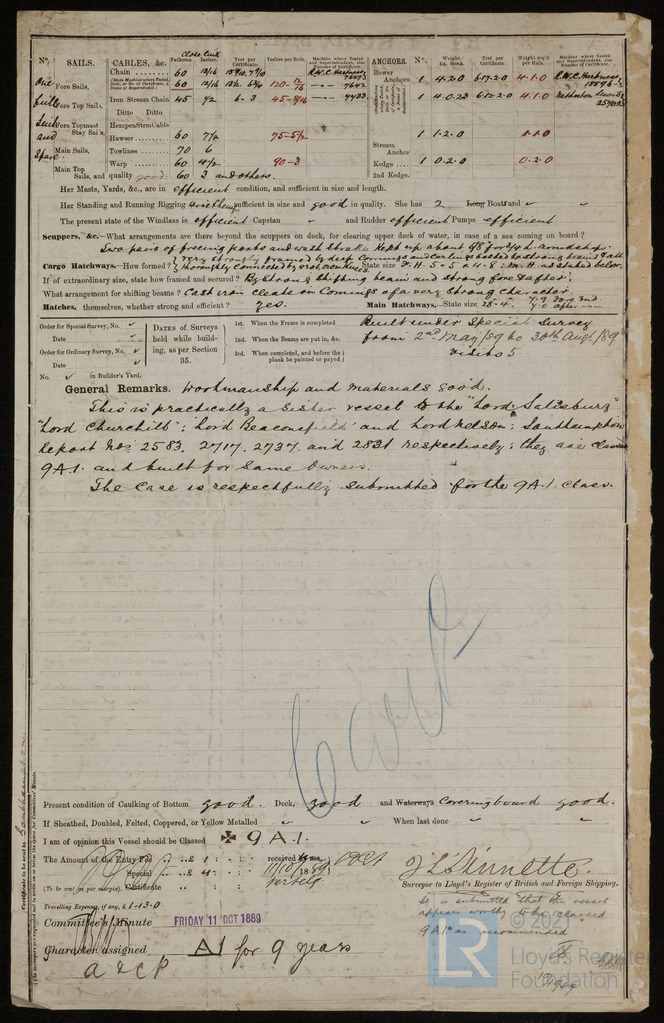 Nº. SAILS. CABLES, &c. Fathoms. Inches. Test per Certificate. Inches per Rule. Machine where Tested and Superintendent, also Number of Certificate. ANCHORS. Nº. Weight. Ex. Stock Test per Certificate. Weight req'd per Rule. Machine where Tested and Superintendent, also Number of Certificate.
One Fore Sails, Chain 60 12/16
60 12/16 120-12/16 7642
Full Fore Top Sails, Iron Stream Chain 45 1/2 6-3 45-8/16 4433
Bower Anchors 1 4.2.0 6.17.2.0 4.1.0 R.W.C. Harkness
1 4.0.23 6.12.2.0 4.1.0
Ditto Ditto
Suit Fore Topmast Stay Sails, Hempen Strm Cable
and Hawser 60 7 1/2 75-5 1/2 1 1.2.0 1.1.0
Main Sails, Towlines 70 6 Stream Anchor
Spare. Main Top Sails, Warp 60 4 1/2 90-3 Kedge 1 0.2.0 0.2.0
and quality good 60 3 and others. 2nd Kedge.
Her Masts, Yards, &c., are in efficient condition, and sufficient in size and length.
Her Standing and Running Rigging Wire & Hemp sufficient in size and good in quality. She has 2 Long Boats and
The present state of the Windlass is efficient Capstan and Rudder efficient Pumps efficient
Scuppers, &c.—What arrangements are there beyond the scuppers on deck, for clearing upper deck of water, in case of sea coming on board?
Two pairs of freeing ports and wash strake kept up about 6/8 for 3/4 L. amidships.
Cargo Hatchways.—How formed? Very strongly framed by deep comings and carlines hooked to strong beams & all
thoroughly connected by iron knees State size F.H. 5-5 x 4-8 : M.H. as stated below.
If of extraordinary size, state how framed and secured? By strong shifting beam and strong fore & afters.
What arrangement for shifting beams? Cast iron cleats on comings of a very strong character.
Hatches, themselves, whether strong and efficient? Yes. Main Hatchways.—State size 28-4 7-9 fore end 7-0 after
Order for Special Survey, No.
Date
Order for Ordinary Survey, No.
Date
No. in Builder's Yard.
DATES of Surveys held while building, as per Section 35.
1st. When the Frame is completed
2nd. When the Beams are put in, &c.
3rd. When completed, and before the plank be painted or payed
Built under Special Survey
from 2nd May/89 to 30th Augt/89
Visits 5
General Remarks. Workmanship and materials good.
This is practically a sister vessel to the "Lord Salisbury"
"Lord Churchill"; Lord Beaconsfield and Lord Nelson; Southampton
Report Nos. 2583, 2717, 2737 and 2831 respectively; they are classed
9A1 and built for same owners.
The case is respectfully submitted for the 9A1 class.
Present condition of Caulking of Bottom good. Deck, good and Waterways Covering board good.
If Sheathed, Doubled, Felted, Coppered, or Yellow Metalled When last done
I am of opinion this Vessel should be Classed ✠ 9 A 1.
The Amount of the Entry Fee £ 1 : : received by me,
Special £ 4 : : 11/10/1889
(To be sent as per margin). Certificate
Travelling Expenses, if any, £ 1-13-0
Surveyor to Lloyd's Register of British and Foreign Shipping.
It is submitted that this vessel
appears worthy to be classed
9A1 as recommended
Committee's Minute FRIDAY 11 OCT 1889
Character assigned A1 for 9 years
A & C P
© 2021
LR Lloyd's Register
Foundation
Certificate to be sent to Southampton